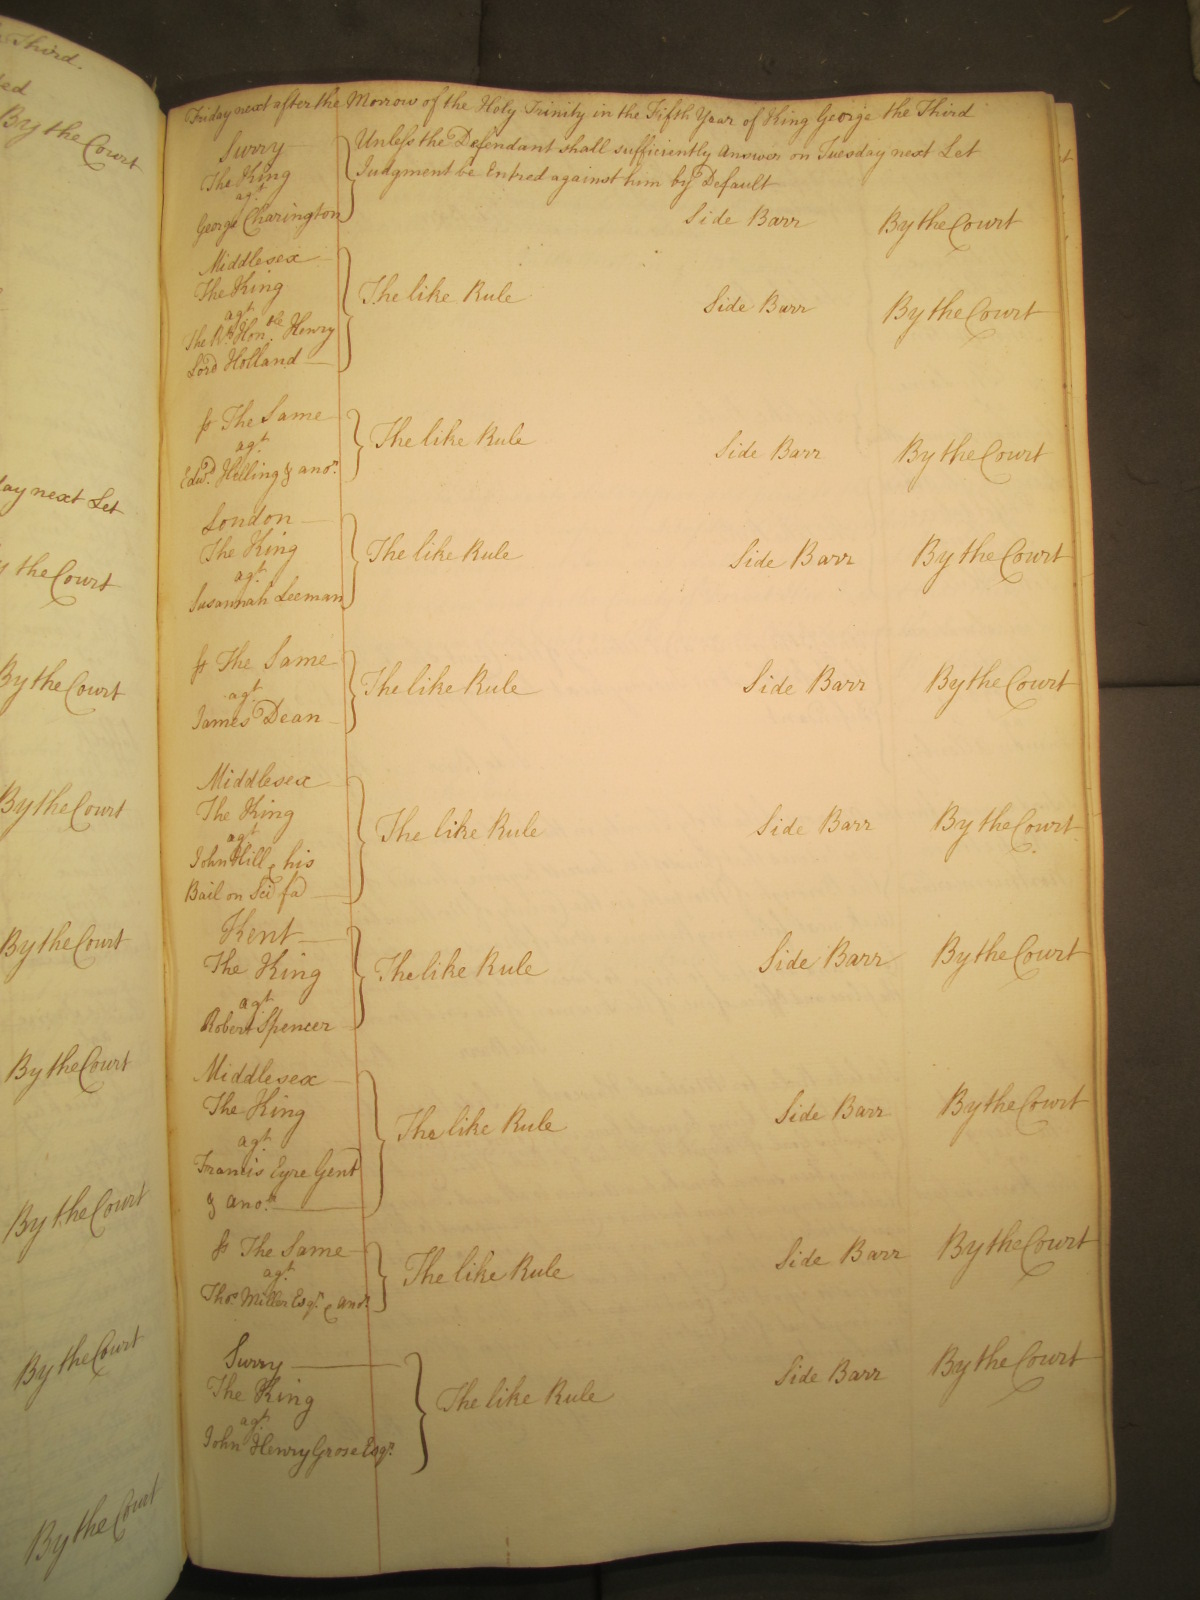 Third.
By the Court
day next Let
By the Court
By the Court
By the Court
By the Court
By the Court
By the Court
By the Court
By the Court
Friday next after the Morrow of the Holy Trinity in the Fifth Year of King George the Third
Surry
The King
agt
George Charington
Unless the Defendant shall sufficiently Answer on Tuesday next Let
Judgment be Entred against him by Default
Side Barr By the Court
Middlesex
The King
agt
The Rt. Honble. Henry
Lord Holland
The like Rule Side Barr By the Court
The Same
agt
Edwd. Helling & anor.
The like Rule Side Barr By the Court
London
The King
agt
Susannah Leeman
The like Rule Side Barr By the Court
The Same
agt
James Dean
The like Rule Side Barr By the Court
Middlesex
The King
agt
John Hill & his
Bail on Sci fa
The like Rule Side Barr By the Court
Kent
The King
agt
Robert Spencer
The like Rule Side Barr By the Court
Middlesex
The King
agt
Francis Eyre Gent
& anor.
The like Rule Side Barr By the Court
The Same
agt
Thos. Miller Esqr. & anor.
The like Rule Side Barr By the Court
Surry
The King
agt
John Henry Grose Esqr.
The like Rule Side Barr By the Court